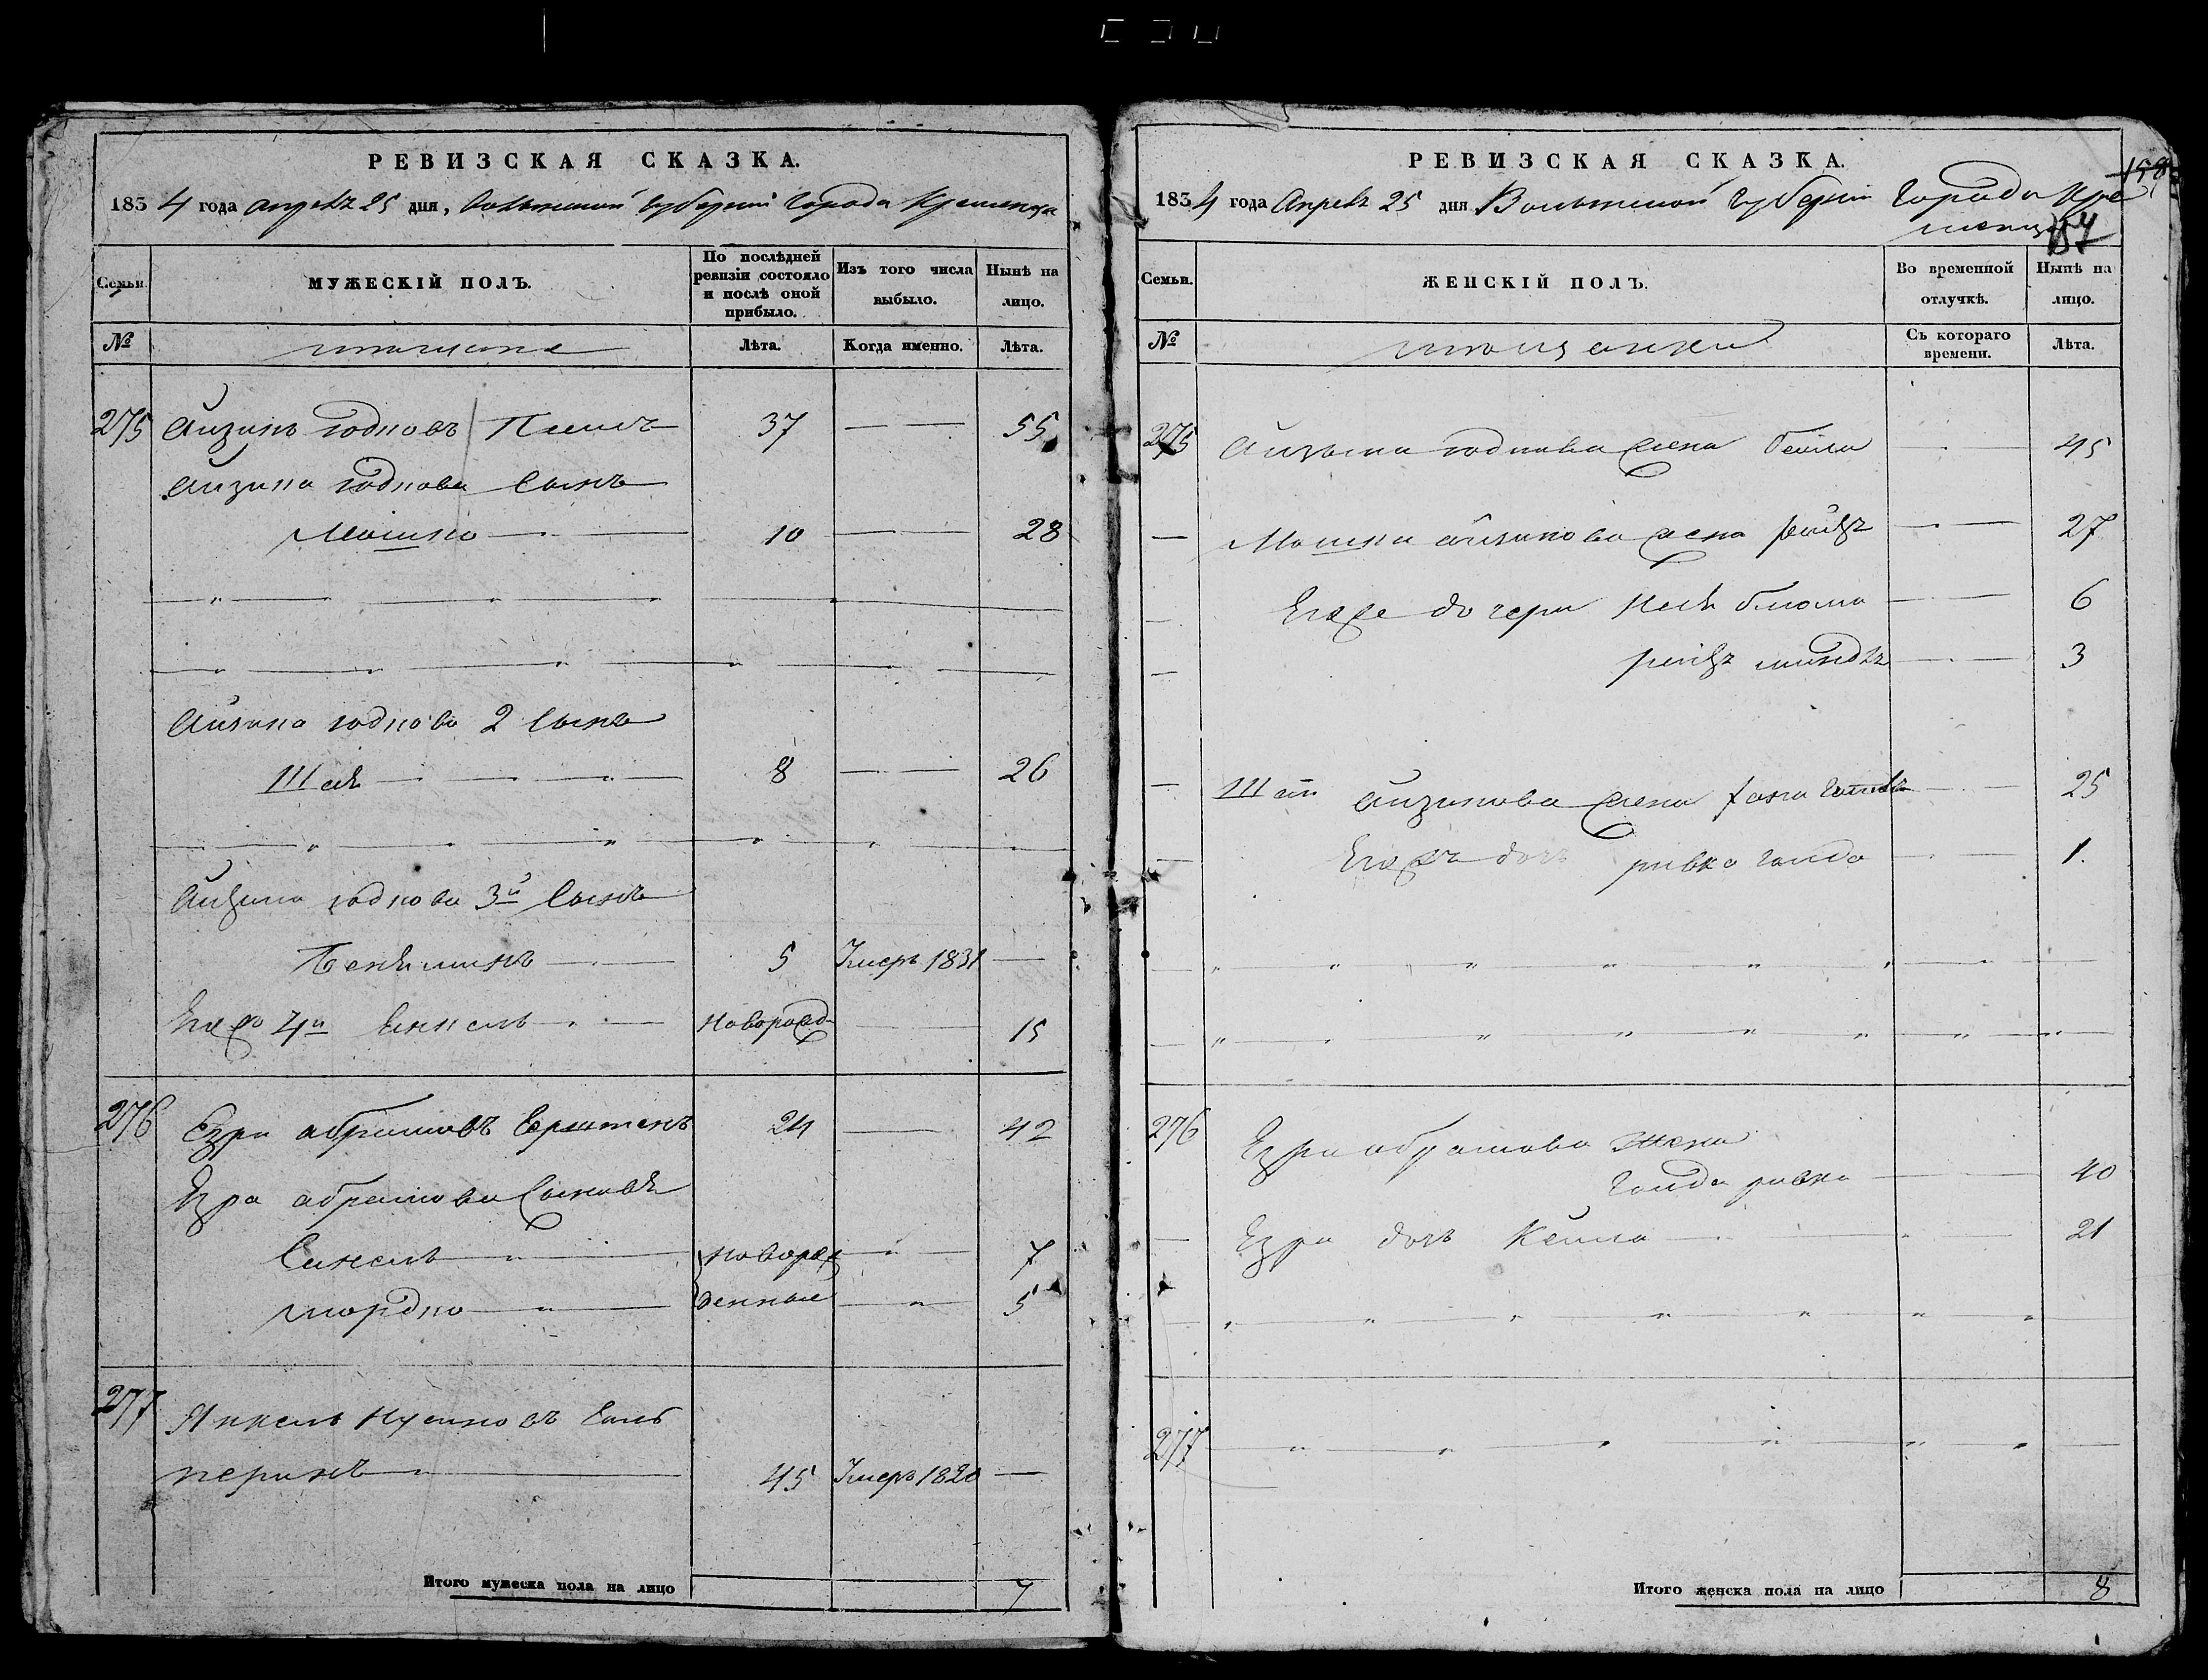 РЕВИЗСКАЯ СКАЗКА.
1834 года апрель 25 дня, Волынской губернии города Кременца
Семьи. МУЖЕСКІЙ ПОЛЪ. По послѣдней ревизіи состояло и послѣ оной прибыло. Изъ того числа выбыло. Нынѣ на лицо.
№ мещане Лѣта. Когда именно. Лѣта.
275 Айзикъ юдковъ 37 — — 55
Айзика юдкова сынъ
Мошко — 10 — — 28
Айзика юдкова 2 сынъ
Шая — 8 — — 26
Айзика юдкова 3й сынъ
Беніминъ — 5 Умеръ 1831 —
Егожъ 4й новорожд — 15
276 Езра абрамовъ 24 — 42
Езра абрамова сыновья
новорож 7
мордко — денные — 5
277 Янкель Нусиновъ Галь
перинъ — 45 Умеръ 1820 —
Итого мужеска пола на лицо 7
РЕВИЗСКАЯ СКАЗКА.
158
1834 года Апрель 25 дня Волынской Губерніи Города Кре
менца
Семьи. ЖЕНСКІЙ ПОЛЪ. Во временной отлучкѣ. Нынѣ на лицо.
№ мещанки Съ котораго времени. Лѣта.
275 Айзыка юдкова жена бейла — — 45
— Мошки айзикова жена рейзя — — 27
— Егоже дочери блюма — — 6
— рейзя миндля — — 3
— Шаи айзикова жена — — 25
— Егожъ дочь ривка голда — — 1.
276 Езри абрамова жена
голда ривка — 40
— Езри дочь Кейла — 21
277
Итого женска пола на лицо 8